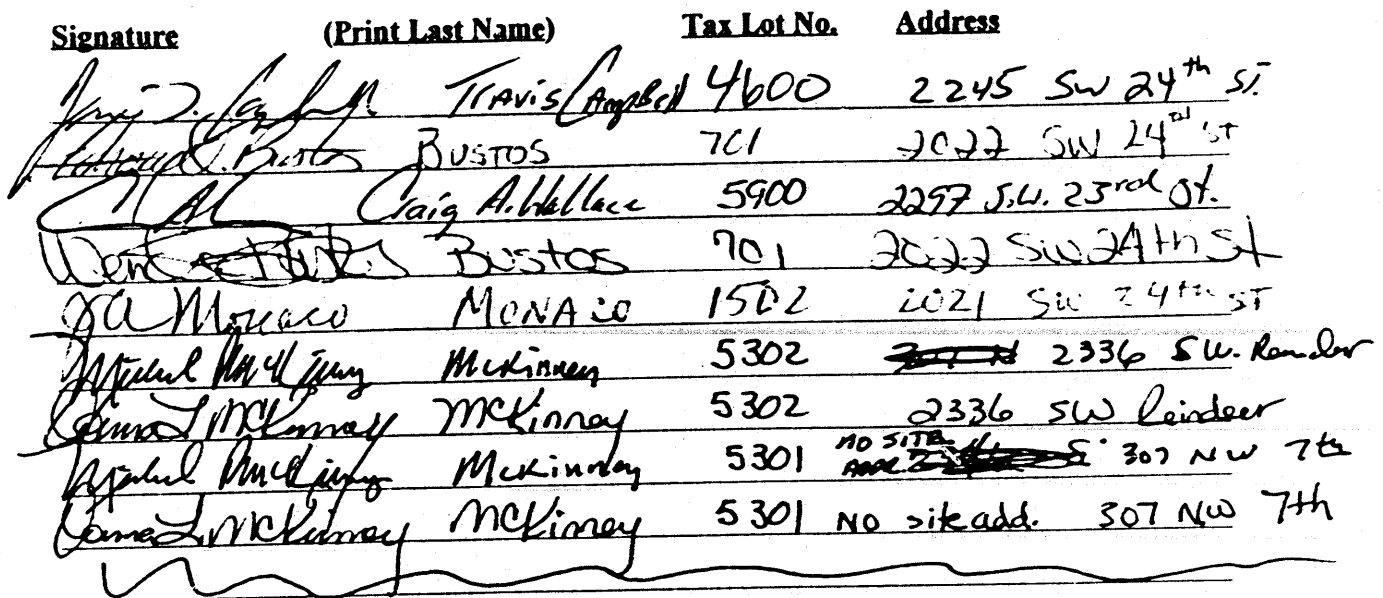 Signature (Print Last Name) Tax Lot No. Address
Travis Campbell 4600 2245 SW 24th ST.
Bustos BUSTOS 701 2022 SW 24th ST
Craig A. Wallace 5900 2297 S.W. 23rd St.
Bustos 701 2022 SW 24th St
JA Monaco MONACO 1502 2021 SW 24th ST
McKinney McKinney 5302 2336 SW. Reindeer
L McKinney McKinney 5302 2336 SW Reindeer
McKinney McKinney 5301 NO SITE ADDR 307 NW 7th
L McKinney McKinney 5301 NO site add. 307 NW 7th